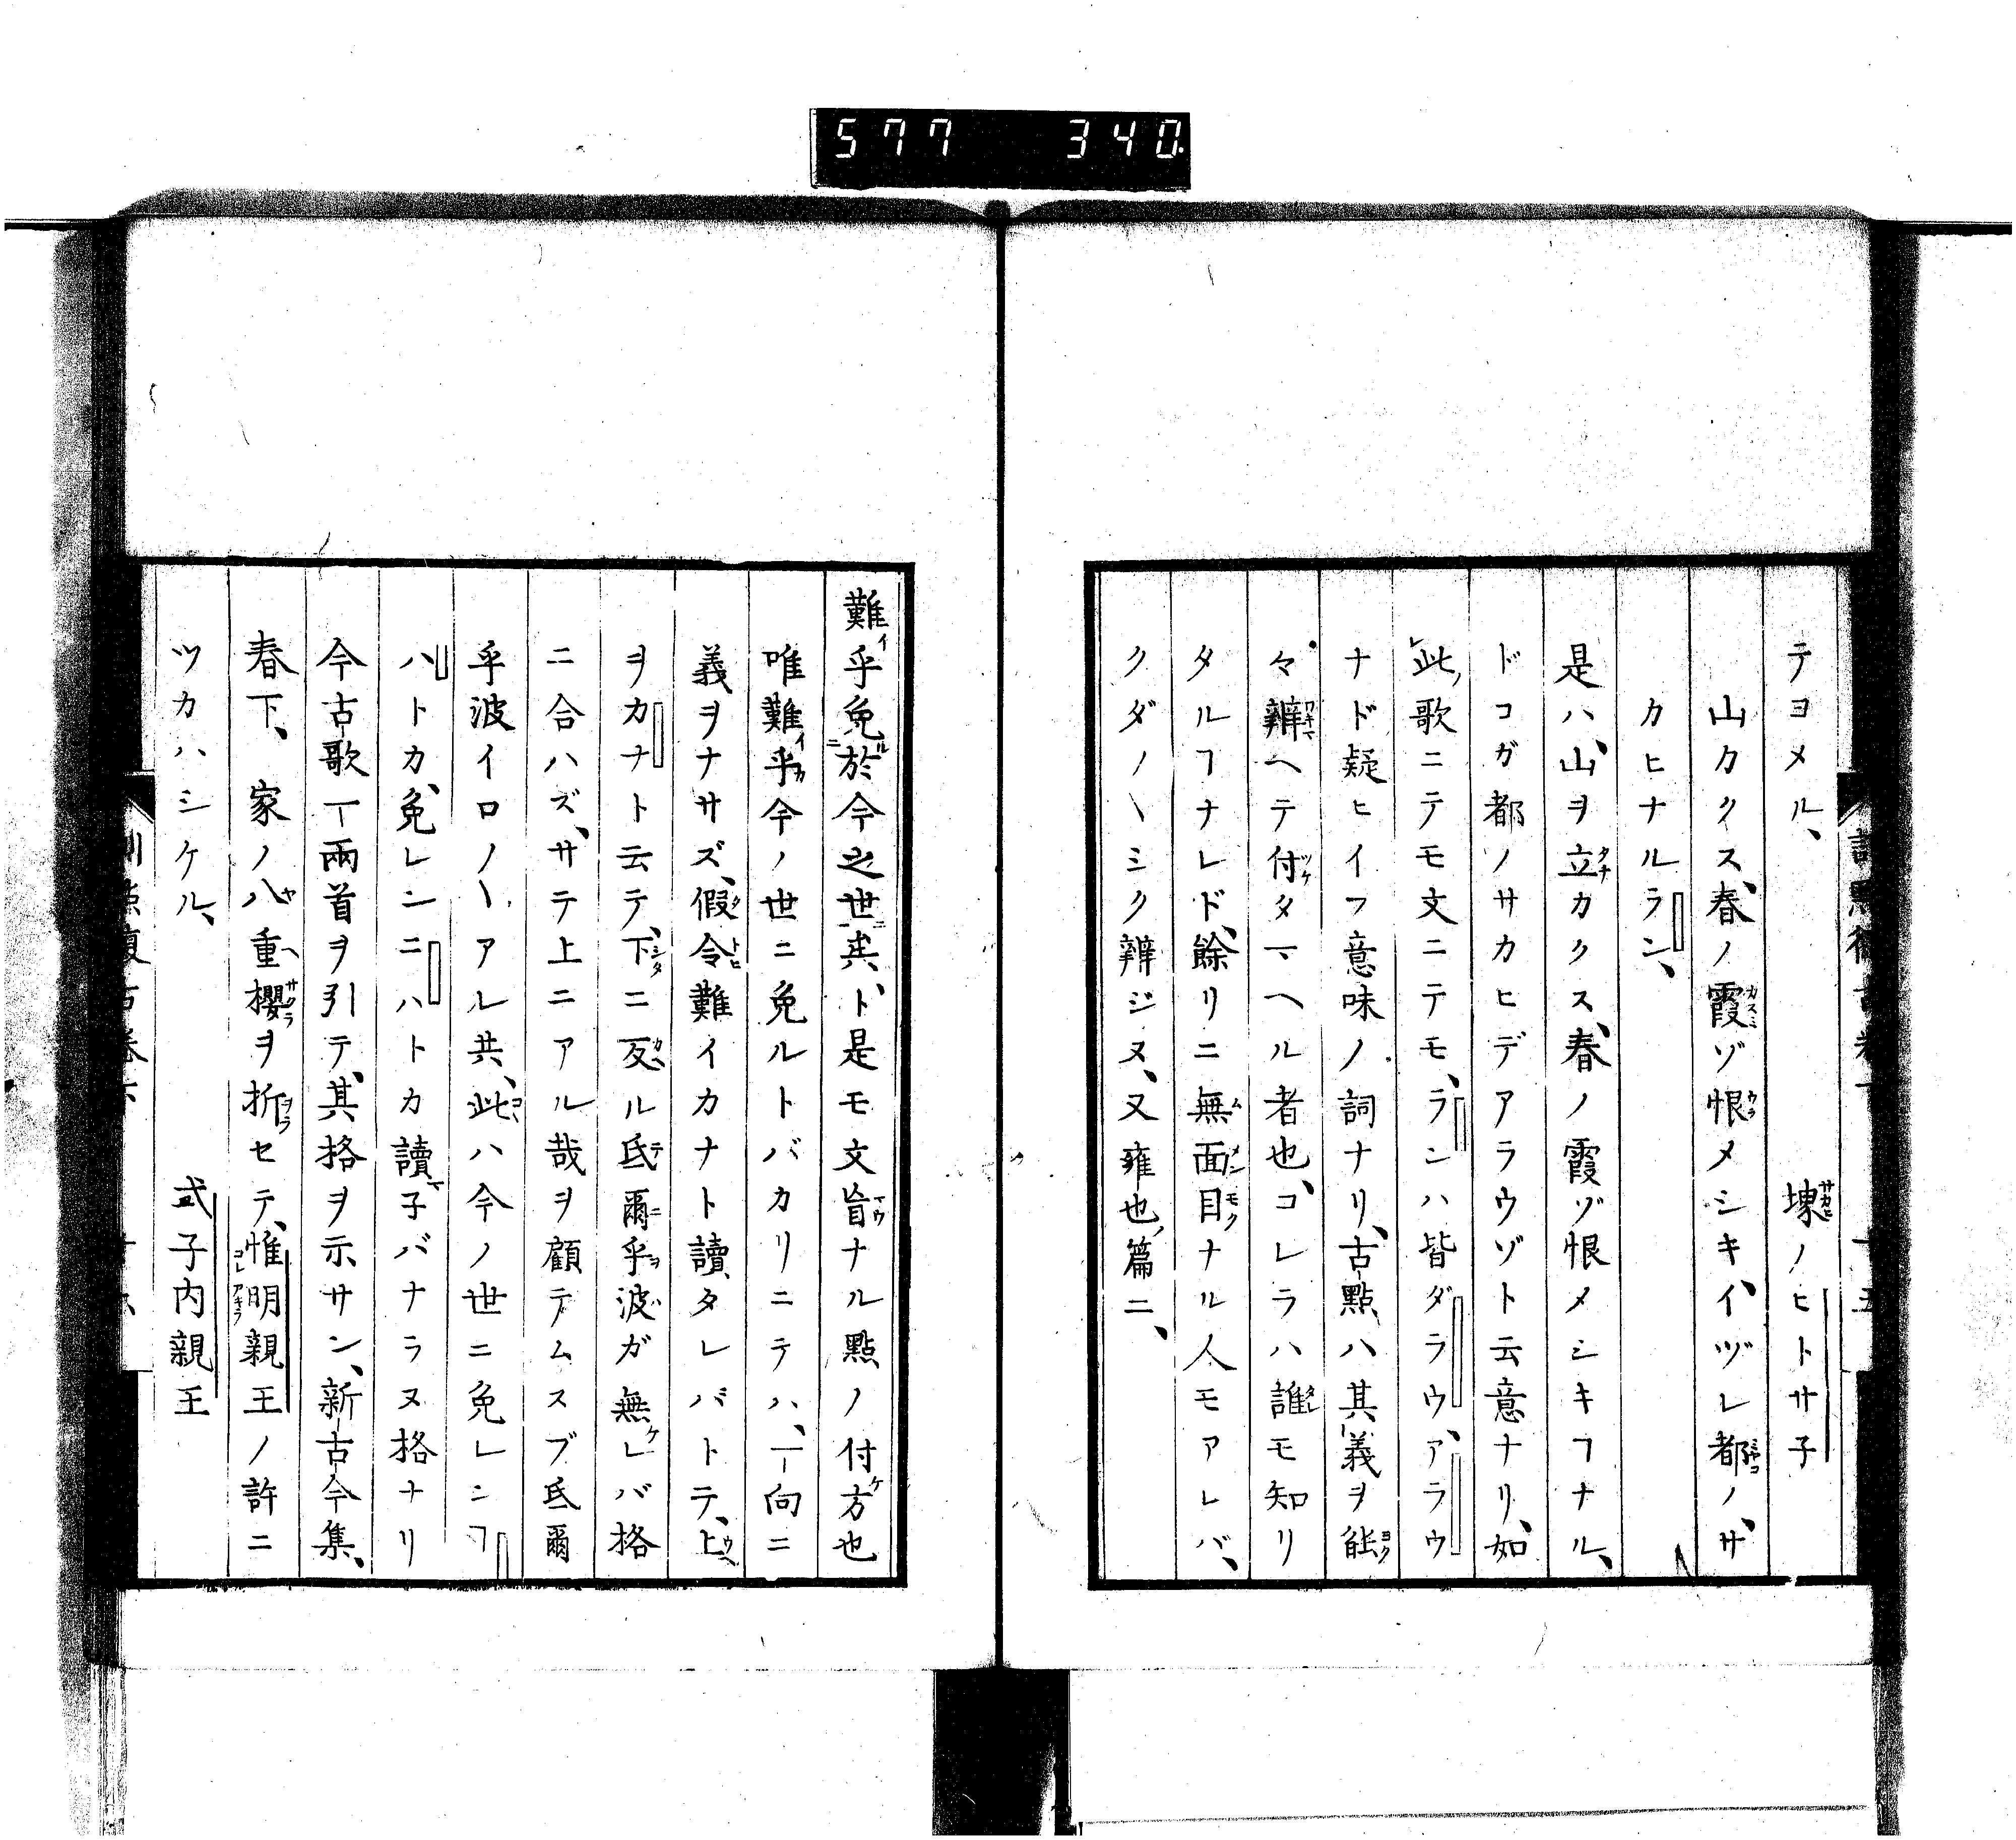 577 340
テヨメル、 㙒ノヒトサ子
山カクス、春ノ霞ゾ恨メシキ、イヅレ都ノ、サ
カヒナルラン、
是ハ、山ヲ立カクス、春ノ霞ゾ恨メシキヿナル、
ドコガ都ノサカヒデアラウゾト云意ナリ、如
此、歌ニテモ文ニテモ、ランハ皆ダラウ、アラウ
ナド疑ヒイフ意味ノ詞ナリ、古點ハ其義ヲ能
々辨ヘテ付タマヘル者也、コレラハ誰モ知リ
タルヿナレド、餘リニ無面目ナル人モアレバ、
クダ〳〵シク辨ジヌ、又雍也、篇ニ、
難乎免於今之世矣、ト是モ文盲ナル點ノ付方也
唯難乎今ノ世ニ免ルトバカリニテハ、一向ニ
義ヲナサズ、假令難イカナト讀タレバトテ、上
ヲカナト云テ、下ニ反ル氐爾乎波ガ無レバ格
ニ合ハズ、サテ上ニアル哉ヲ顧テムスブ氐爾
乎波イロ〳〵アレ共、此ハ今ノ世ニ免レンヿ
ハトカ、免レンニハトカ讀子バナラヌ格ナリ
今古歌一兩首ヲ引テ、其格ヲ示サン、新古今集、
春下、 家ノ八重櫻ヲ折セテ、惟明親王ノ許ニ
ツカハシケル、 式子内親王